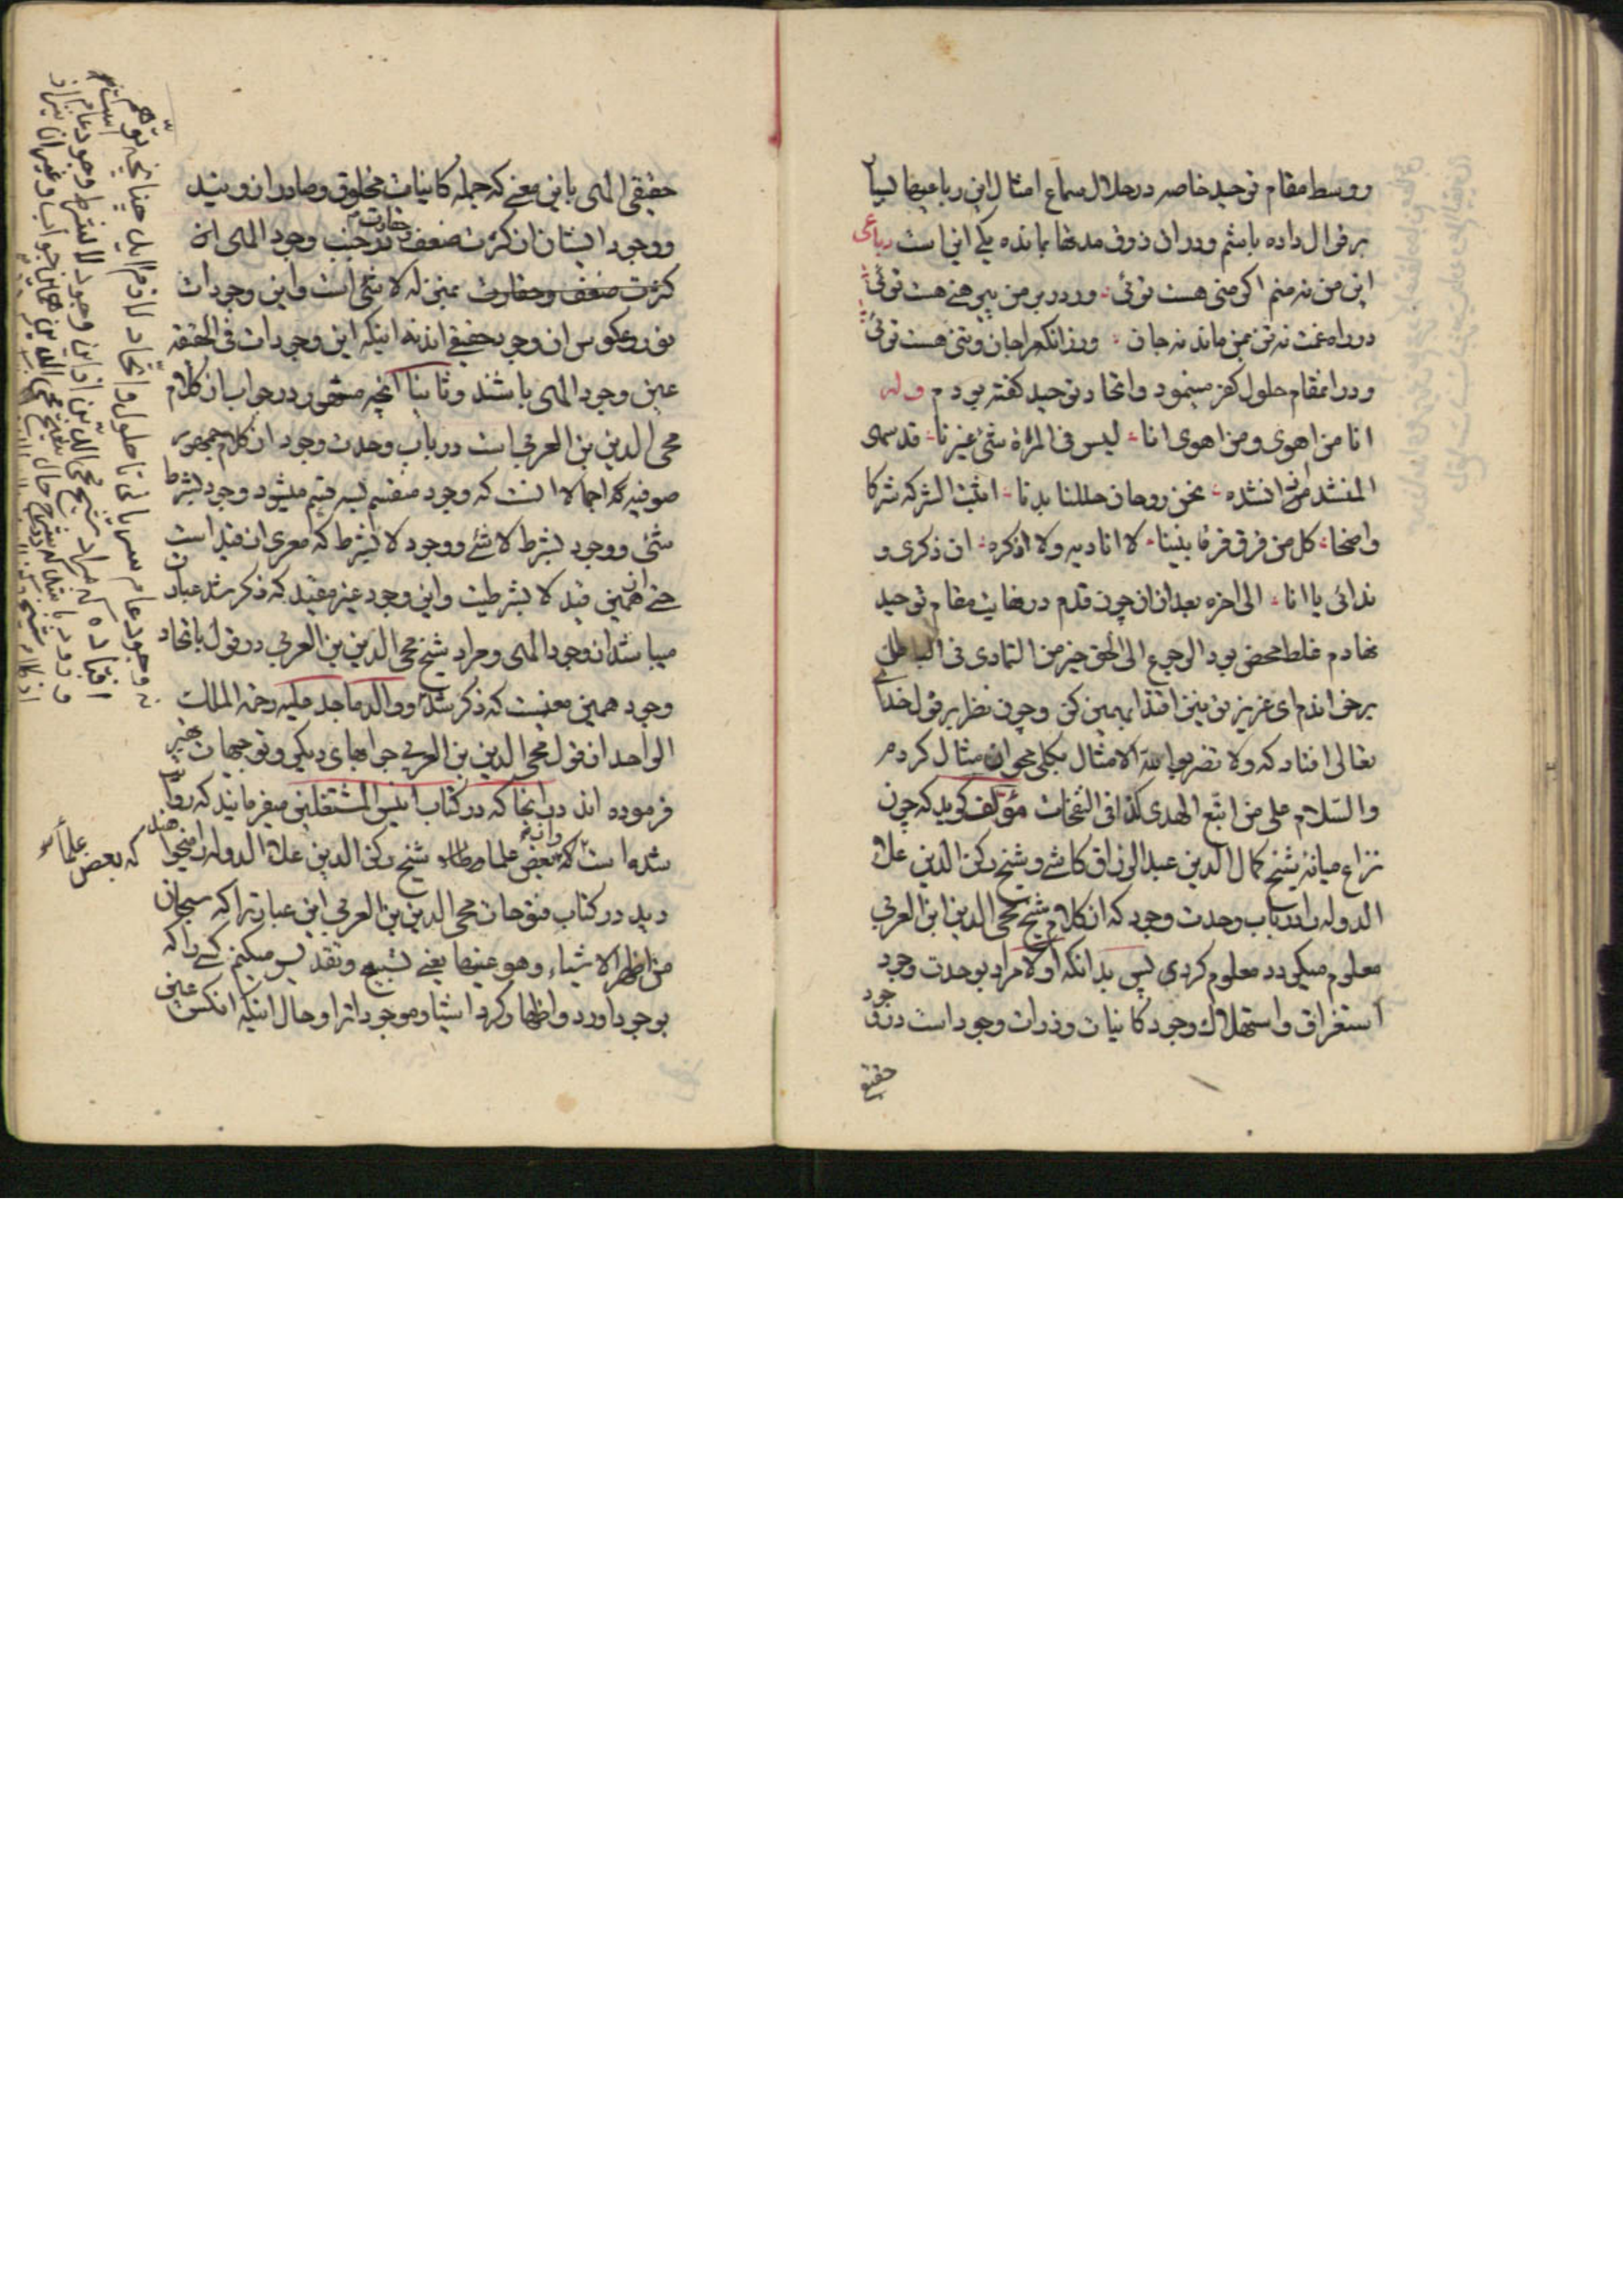 و وسط مقام توحید خاصه در خلال سماع امثال این رباعیها بسیا
بر قوال داده باشم و در آن ذوق مدتها بمانده یکی این است رباعی
این من نه منم اگر منی هست توئی ور در بر من پیرهنی هست توئی
در راه غمت نه تن بمن ماند نه جان ور زانکه مرا جان و تنی هست توئی
و در آنمقام حلول کفر مینمود و اتحاد توحید گفته بودم وله
انا من اهوی و من اهوی انا لیس فی المرآة شئ غیرنا قد سهی
المنشد اذ انشده نحن روحان حللنا بدنا اثبت الشرکة شرکا
واضحا کل من فرق فرقا بیننا لا انادیه ولا اذکره ان ذکری و
ندائی یا انا الی اخره بعد از آن چون قدم در نهایت مقام توحید
نهادم غلط محض بود الرجوع الی الحق خیر من التمادی فی الباطل
بر خواندم ای عزیز تو نیز اقتدا بهمین کن و چون نظر بر قول خدا
تعالی افتاد که ولا تضربوا لله الامثال بکلی محو آن مثال کردم
والسلام علی من اتبع الهدی کذا فی النفحات مؤلف گوید که چون
نزاع میانه شیخ کمال الدین عبد الرزاق کاشی و شیخ رکن الدین علاء
الدوله را در باب وحدت وجود که از کلام شیخ محی الدین ابن العربی
معلوم میگردد معلوم کردی پس بدانکه اولا مراد بوحدت وجود
استغراق و استهلاک وجود کاینات و ذرات وجود است در وجود
حقیقی
حقیقی الهی باین معنی که جمله کاینات مخلوق و صادر از ویند
و وجود ایشان از کثرت ضعف و حقارت در جنب وجود الهی از
کثرت ضعف و حقارت بمنزله لا شئ است و این وجودات
نور و عکوس آن وجود حقیقی اند نه اینکه این وجودات فی الحقیقه
عین وجود الهی باشند و ثانیا آنچه در جواب از کلام
محی الدین بن العربی است در باب وحدت وجود از کلام جمهور
صوفیه که اجمالا آنست که وجود منقسم بسه قسم میشود وجود بشرط
شئ و وجود بشرط لا شئ و وجود لا بشرط که معری از قید است
حتی از همین قید لا بشرطیت و این وجود غیر مقید که ذکر شد عبارت
میباشد از وجود الهی و مراد شیخ محی الدین بن العربی در قول باتحاد
وجود همین معنیست که ذکر شد و والد ماجد علیه رحمة الملک
الواحد از قول محی الدین بن العربی جوابهای دیگر و توجیهات بخیر
فرموده اند در آنجا که در کتاب انیس المشتغلین میفرمایند که روایت
شده است که بعض علما شیخ رکن الدین علاء الدوله را
دید در کتاب فتوحات محی الدین بن العربی این عبارترا که سبحان
من اظهر الاشیاء وهو عینها یعنی تسبیح و تقدیس میکنم کسی را که
بوجود آورد و اظهار کرد اشیا و موجودات را و حال آنکه آنکس عین
که بعض علما
نه وجود عام سریانی تا حلول و اتحاد لازم آید چنانچه توهم
افتاده که مراد شیخ محی الدین از این وجود لا بشرط وجود عام است